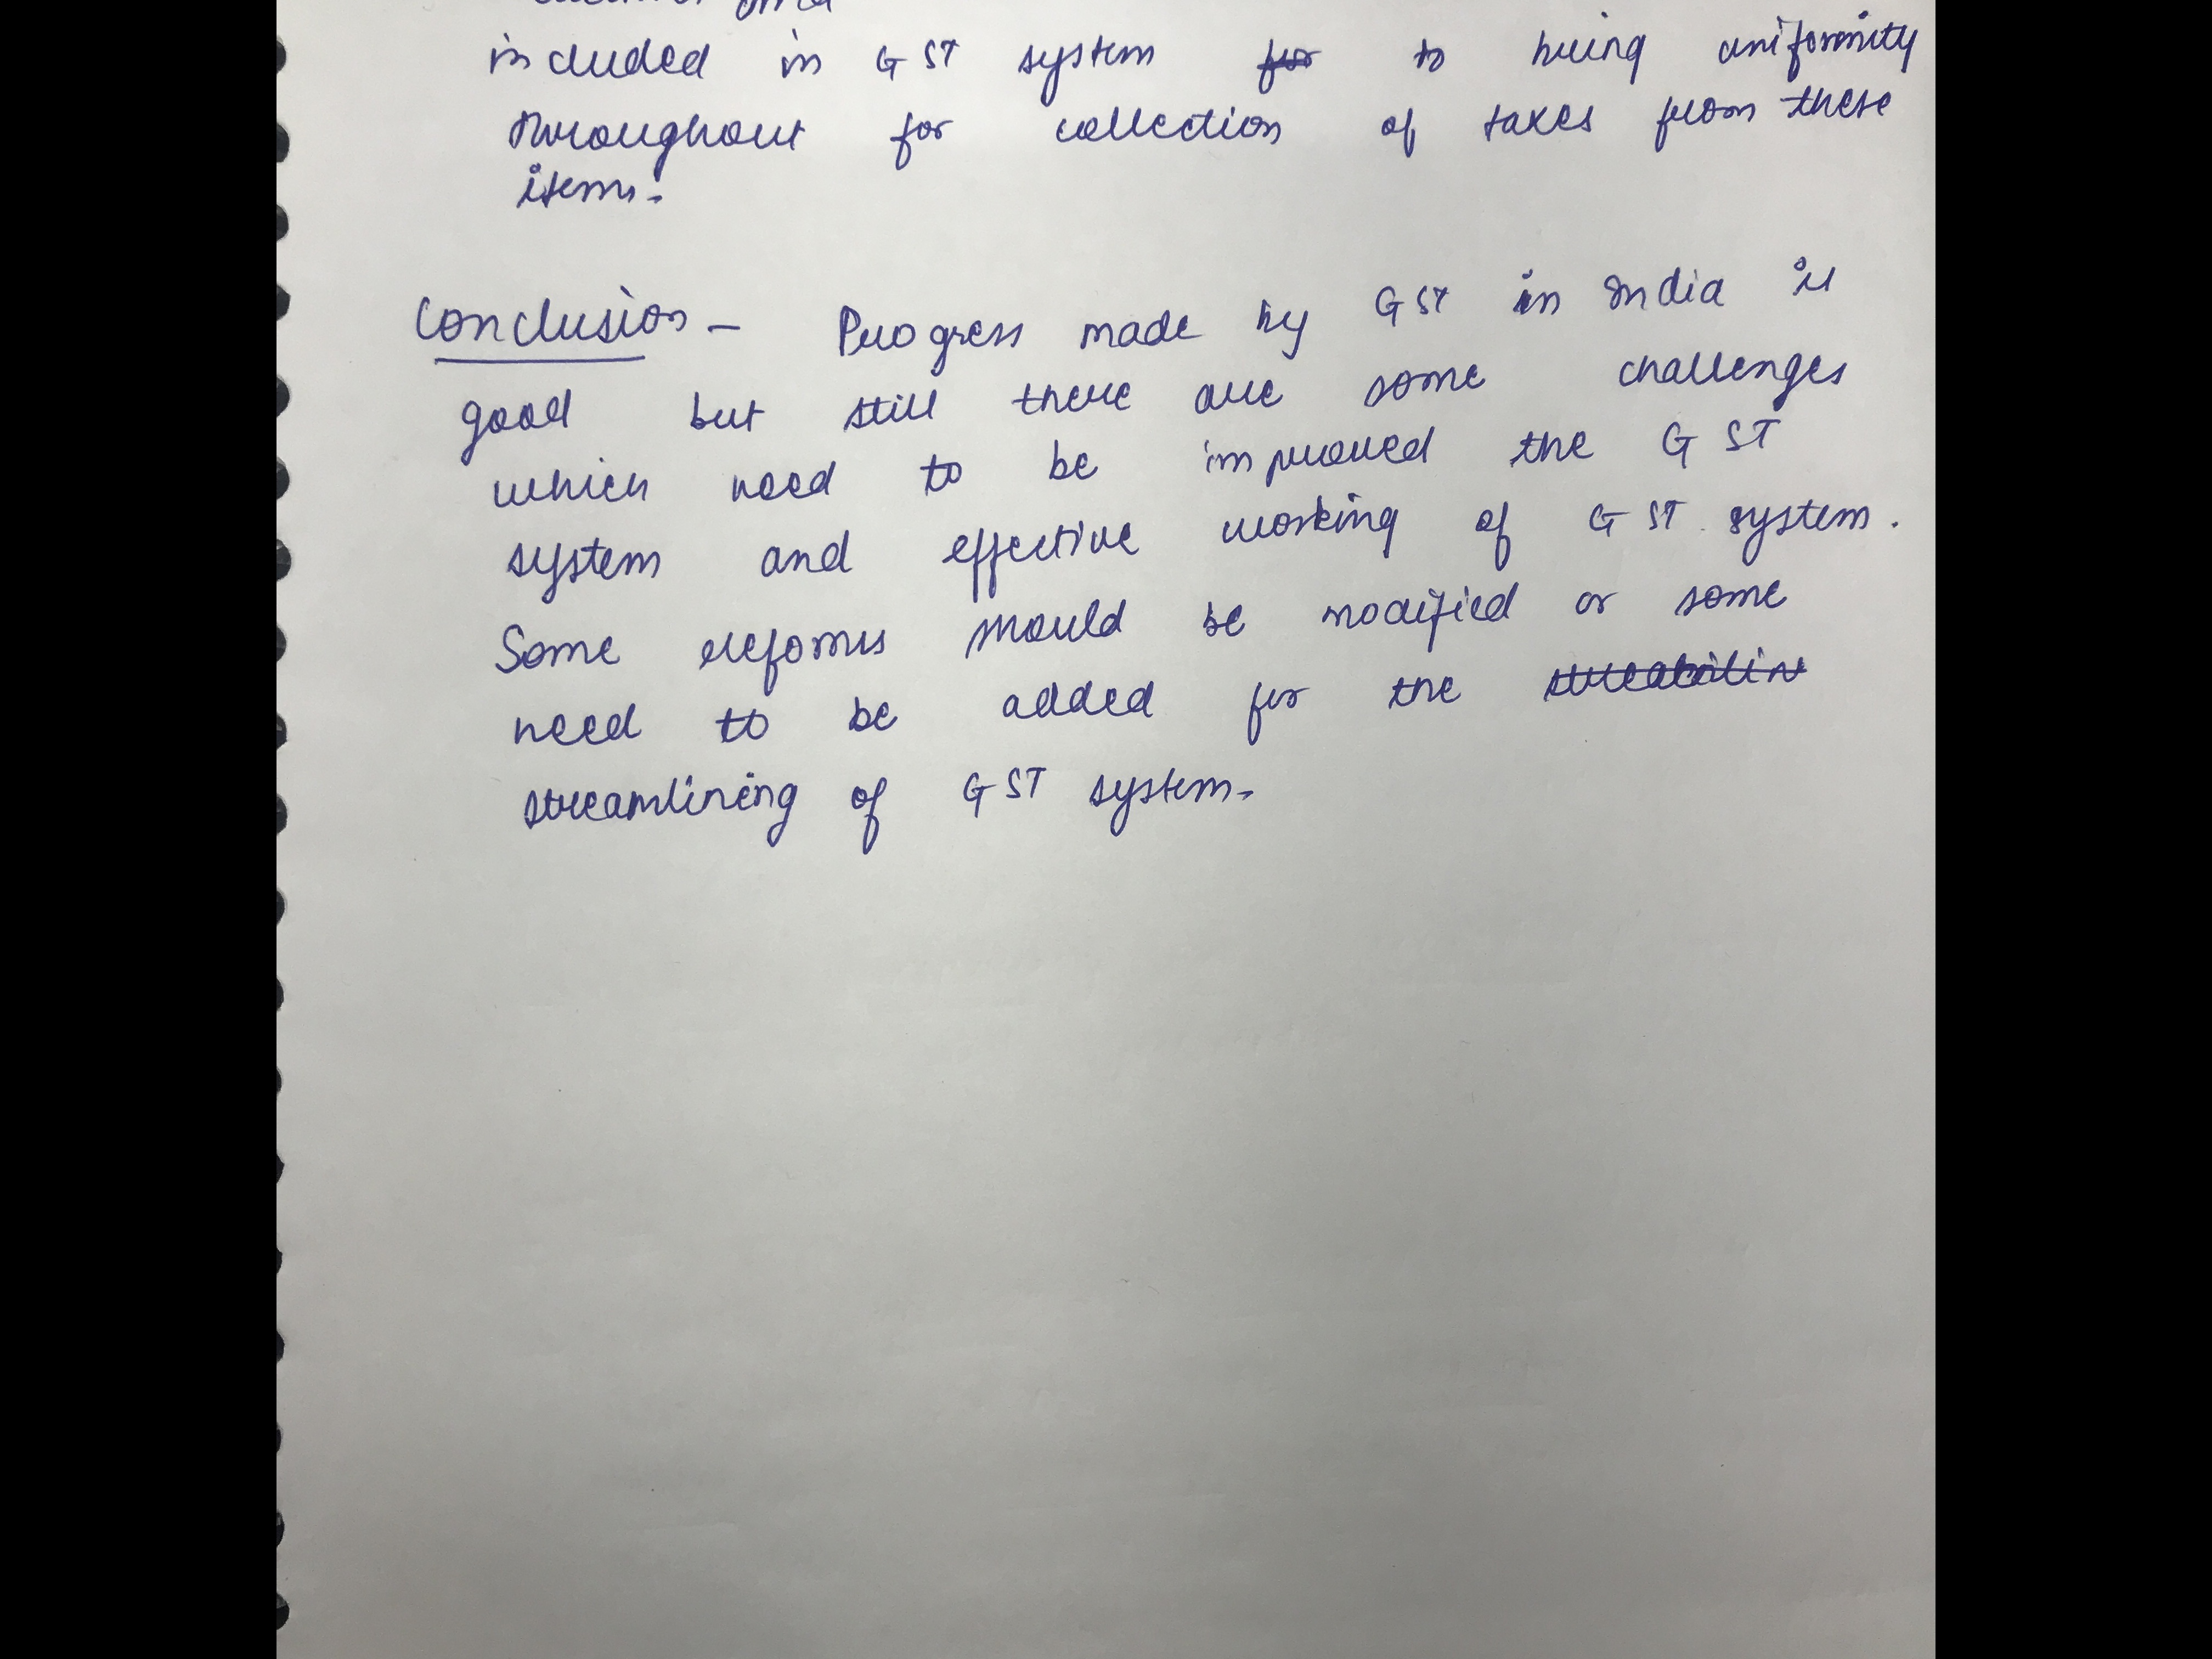 included in GST system for to bring uniformity
throughout for collection of taxes from these
items.
Conclusion - Progress made by GST in India is
good but still there are some challenges
which need to be improved the GST
system and effective working of GST system.
Some reforms should be modified or some
need to be added for the
streamlining of GST system.